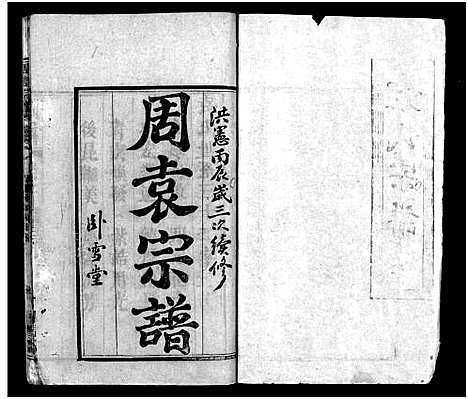 洪憲丙辰歲三次續修
周袁宗譜
卧雪堂